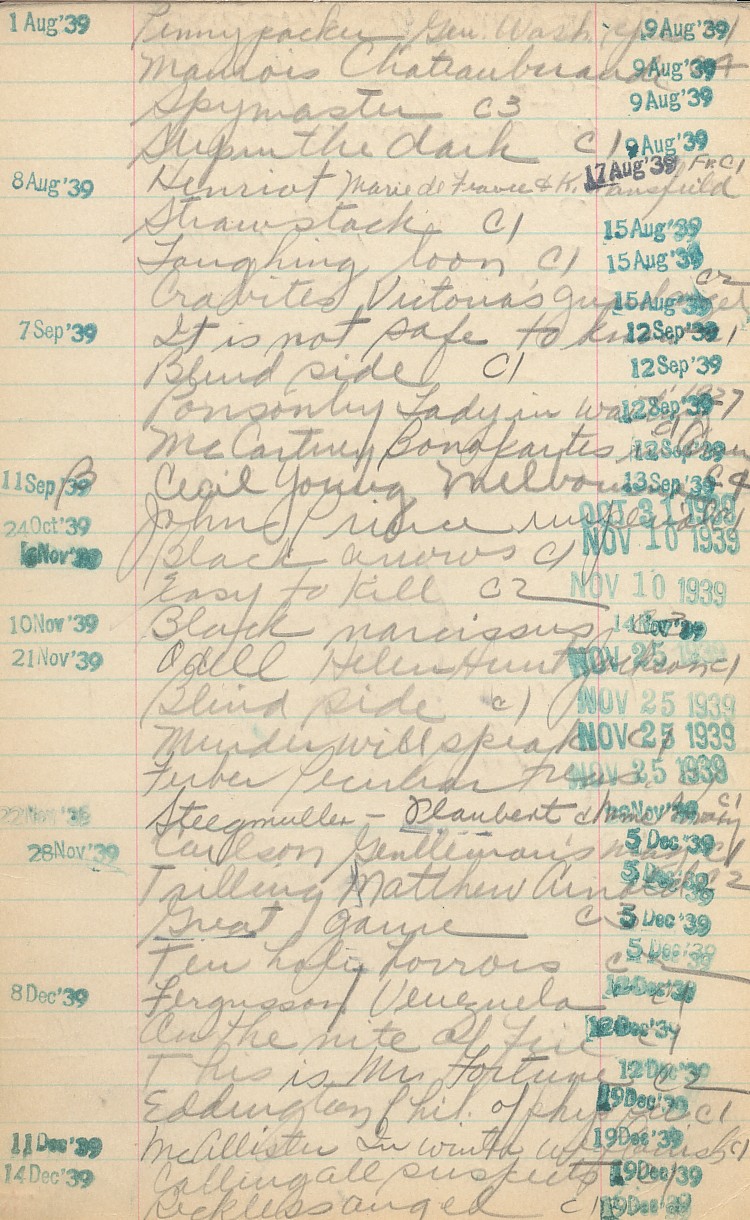 1 Aug '39 Pennypacker Gen. Wash. 9 Aug '39
Maurois Chateaubriand 9 Aug '39 C4
Spymaster C3 9 Aug '39
Step in the dark C1 9 Aug '39
8 Aug '39 Henriot Marie de France & K. Mansfield 17 Aug '39 Fr. C1
Strawstack C1 15 Aug '39
Laughing loon C1 15 Aug '39
Crabites Victoria's 15 Aug '39 C2
7 Sep '39 It is not safe to know 12 Sep '39 C1
Blind side C1 12 Sep '39
Ponsonby Lady in waiting 12 Sep '39
McCartney Bonapartes in 12 Sep '39
11 Sep '39 Cecil Young Melbourne 13 Sep '39 C4
24 Oct '39 Johns Prince OCT 31 1939
Nov '39 Black arrows C1 NOV 10 1939
Easy to kill C2 NOV 10 1939
10 Nov '39 Black narcissus 14 Nov '39
21 Nov '39 Odell Helen Hunt Jackson C1 NOV 25 1939
Blind side C1 NOV 25 1939
Murder will speak NOV 25 1939
Ferber Peculiar Treas. NOV 25 1939
22 Nov '39 Steegmuller - Flaubert & Mme Bovary C1 Nov '39
28 Nov '39 Carlson Gentleman's mag. C1 5 Dec '39
Trilling Matthew Arnold 5 Dec '39 C2
Great game 5 Dec '39
Ten holy horrors 5 Dec '39
8 Dec '39 Fergusson Venezuela 12 Dec '39
On the nite of fire 12 Dec '39
This is Mr. Fortune C2 12 Dec '39
Eddington Phil. of phys. sci. C1 19 Dec '39
11 Dec '39 McAllister In winter C1 19 Dec '39
14 Dec '39 Calling all suspects 19 Dec '39
Reckless angel C1 19 Dec '39